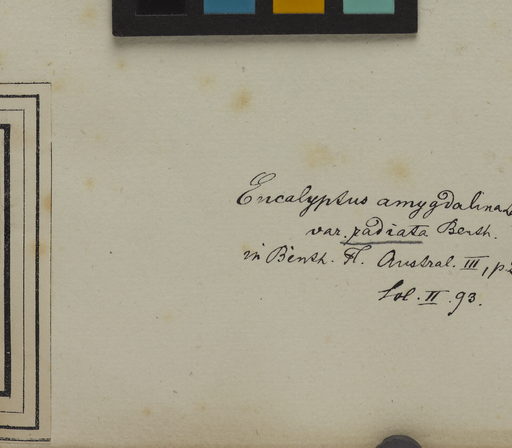 Eucalyptus amygdalina
var. radiata Benth.
in Benth. Fl. Austral. III, p2
Sol. II. 93.